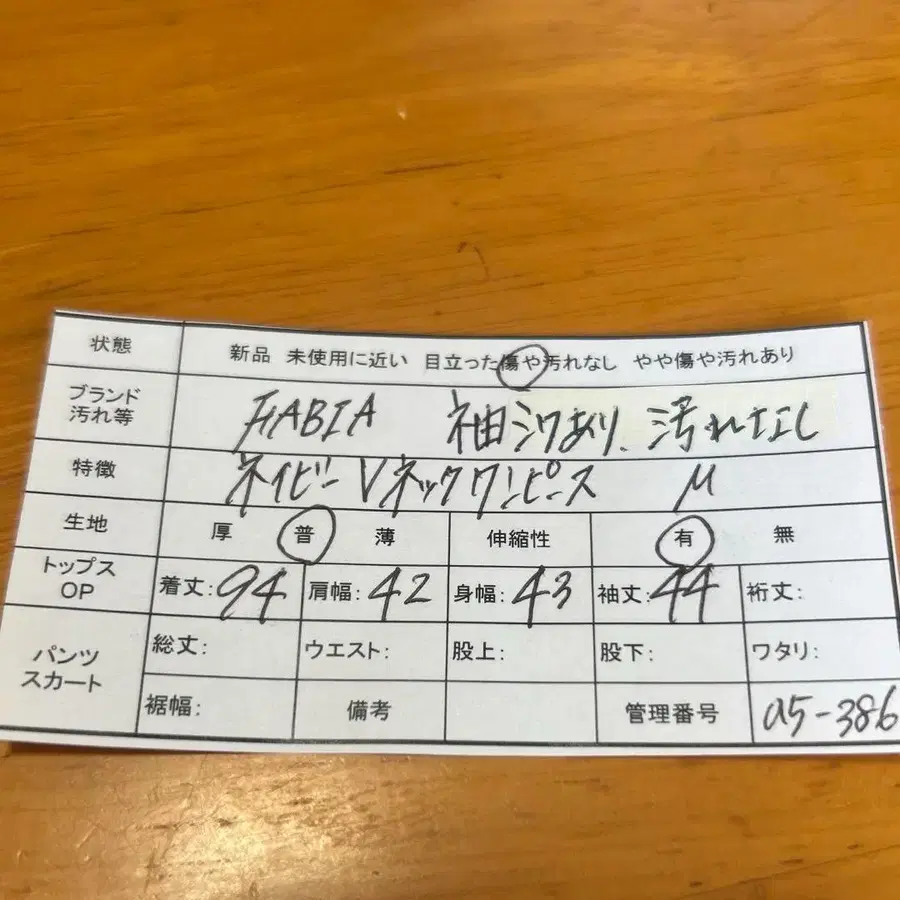 状態 新品 未使用に近い 目立った傷や汚れなし やや傷や汚れあり
ブランド 汚れ等 HABIA 袖シワあり、汚れなし
特徴 ネイビーVネックワンピース M
生地 厚 普 薄 伸縮性 有 無
トップス OP 着丈:94 肩幅:42 身幅:43 袖丈:44 裄丈:
パンツ スカート 総丈: ウエスト: 股上: 股下: ワタリ:
裾幅: 備考 管理番号 a5-386